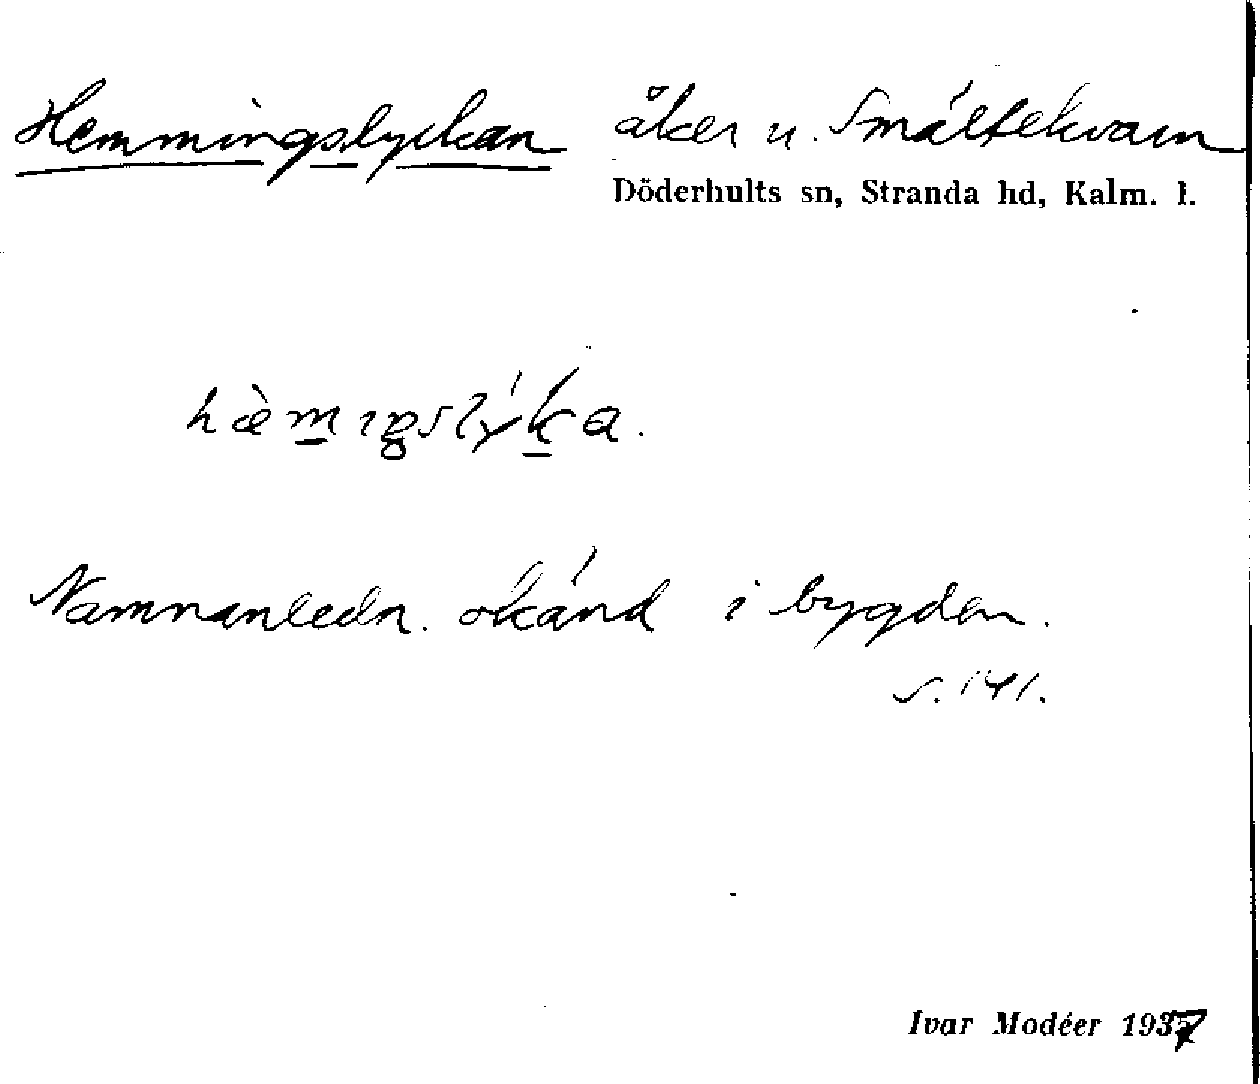 Hemmingslyckan åker u. Smältekvarn
Döderhults sn, Stranda hd, Kalm. l.
Namnanledn. okänd i bygden.
s. 141.
Ivar Modéer 1937